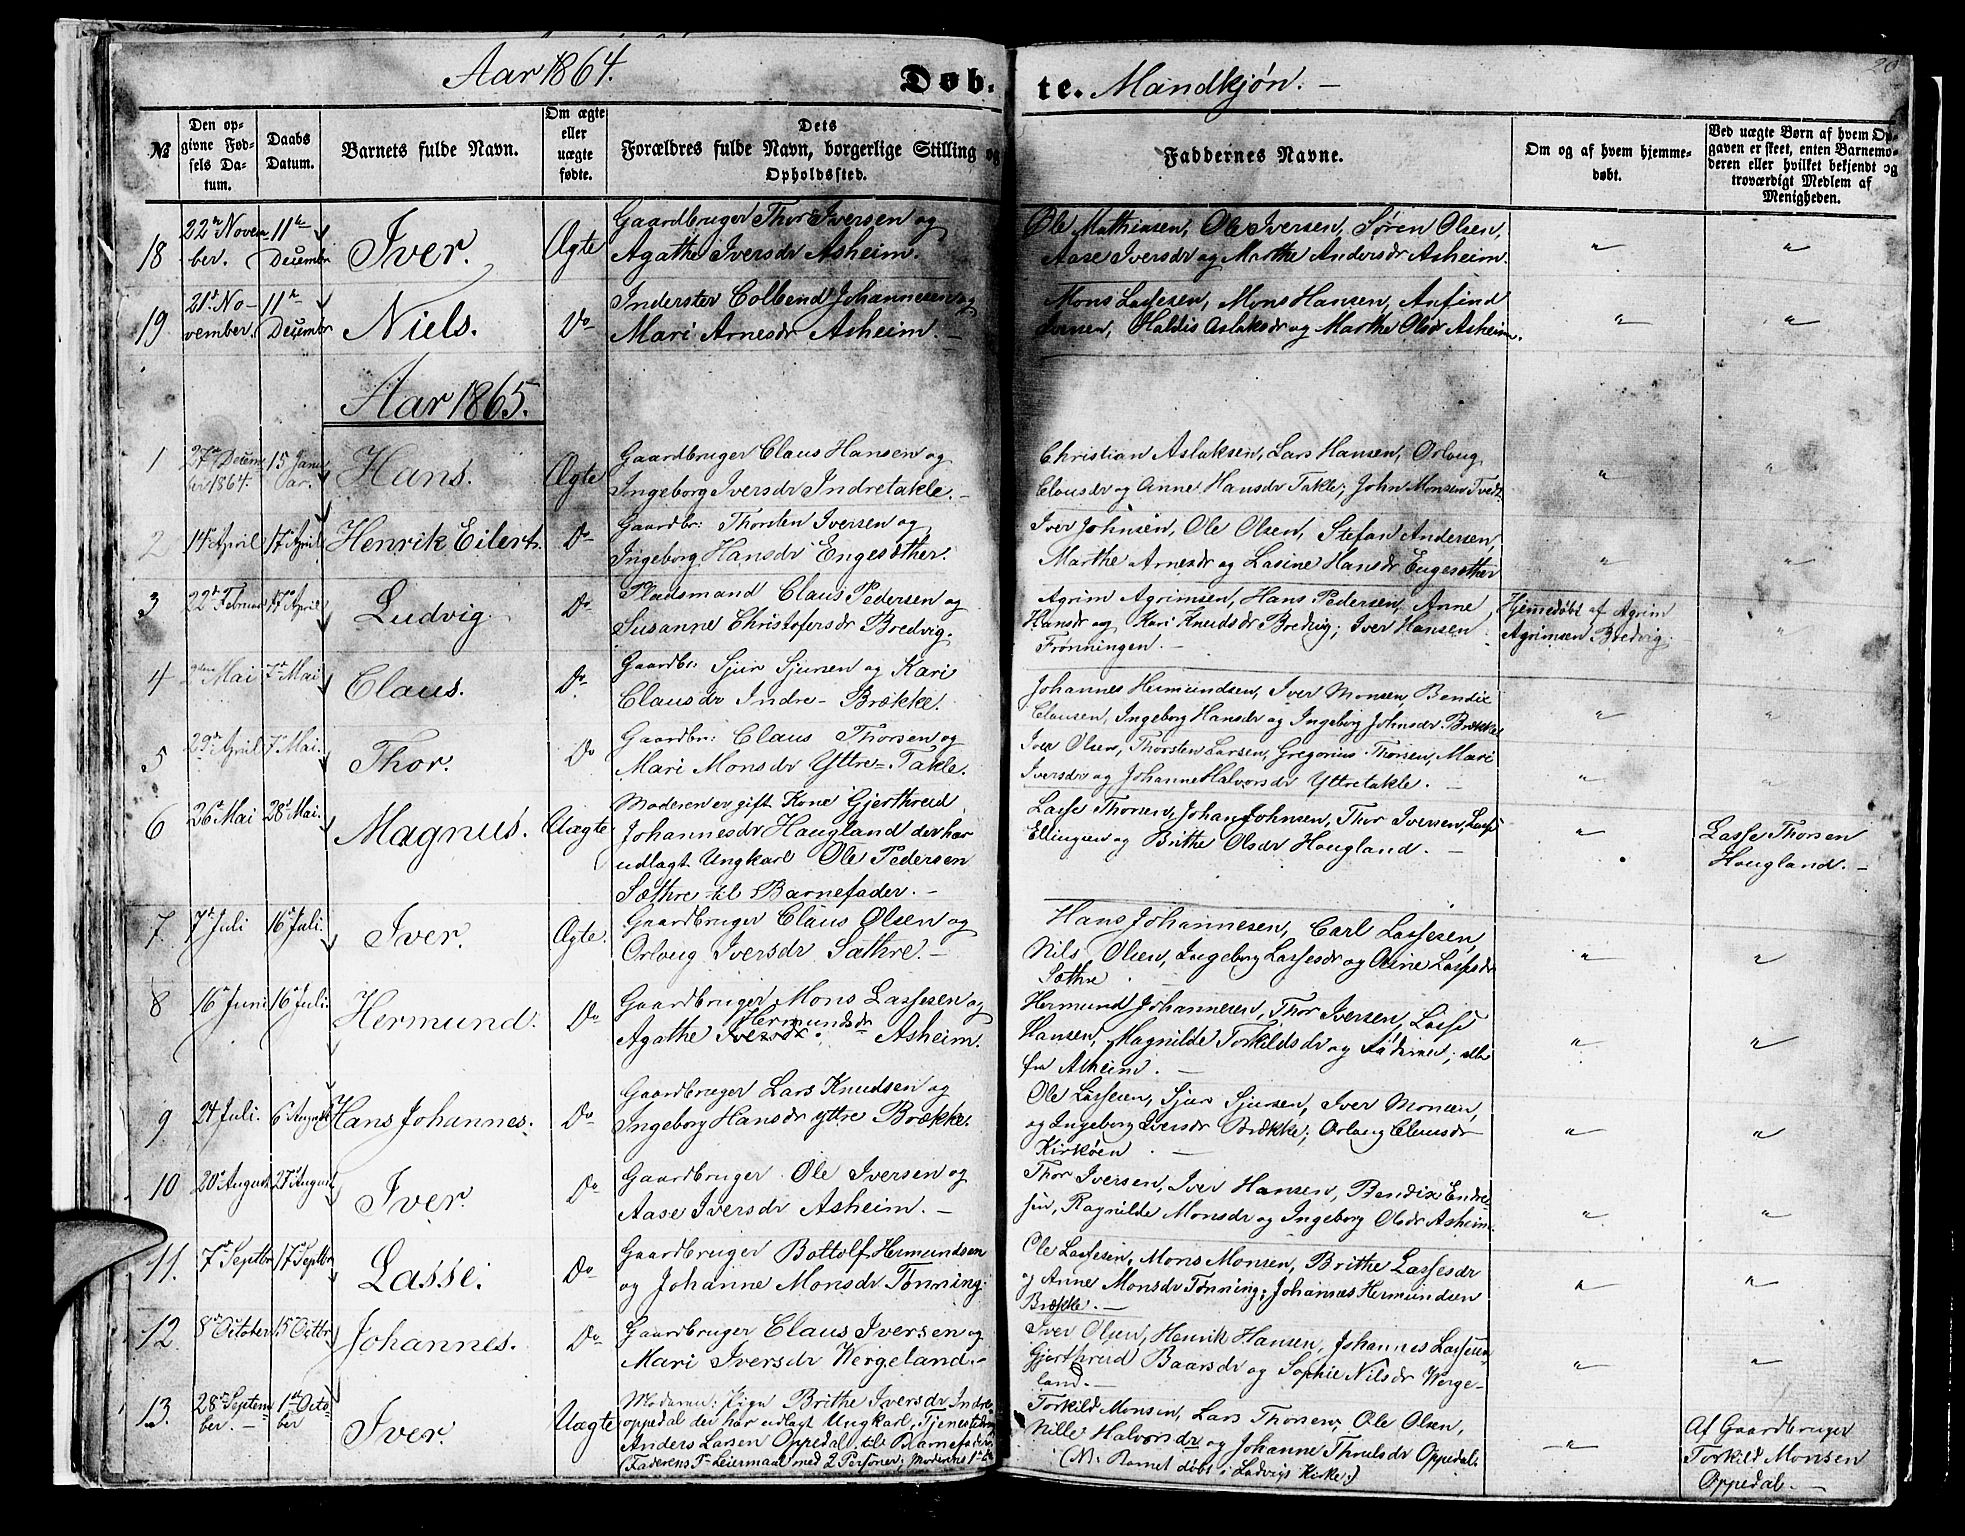 Aar 1864.
Døb-
te. Mandkjøn. —
20
№
Den op-
givne Fød-
sels Da-
tum.
Daabs
Datum.
Barnets fulde Navn.
Om ægte
eller
uægte
fødte.
Dets
Forældres fulde Navn, borgerlige Stilling og
Opholdssted.
Faddernes Navne.
Om og af hvem hjemme-
døbt.
Ved uægte Børn af hvem Op-
gaven er skeet, enten Barnemo-
deren eller hvilket bekjendt og
troværdigt Medlem af
Menigheden.
18
22de Novem
ber.
11te
Decembr
Iver.
Ægte
Gaardbruger Thor Iversen og
Agathe Iversdr Asheim.
Ole Mathiasen, Ole Iversen, Søren Olsen,
Aase Iversdr og Marthe Andersdr Asheim.
"
"
19
21de No-
vember.
11te
Decembr
Niels.
Do
Inderster Colbend Johannesen og
Mari Arnesdr Asheim. —
Mons Lassesen, Mons Hansen, Anfind
Iversen, Haldis Aslaksdr og Marthe Olsdr Asheim.
"
"
Aar 1865.
1
27de Decem
ber 1864.
15 Janu
ar.
Hans.
Ægte
Gaardbruger Claus Hansen og
Ingeborg Iversdr Indretakle. —
Christian Aslaksen, Lars Hansen, Orloug
Clausdr og Anne Hansdr Takle; John Monsen Tvedt
"
"
2
14de April
17de April
Henrik Eilert.
Do
Gaardbr: Thorsten Iversen og
Ingeborg Hansdr Engesæther.
Iver Johnsen, Ole Olsen, Stefan Andersen,
Marthe Arnesdr og Lasine Hansdr Engesæther
"
"
3
22de Februar
17de April
Ludvig.
Do
Pladsmand Claus Pedersen og
Susanne Christofersdr Bredvig.
Agrim Agrimsen, Hans Pedersen, Anne
Hansdr og Kari Knudsdr Bredvig; Iver Hansen
Frønningen. —
Hjemmedøbt af Agrim
Agrimsen Bredvig.
"
4
Mai
7de Mai
Claus.
Do
Gaardbr: Sjur Sjursen og Kari
Clausdr Indre-Brække.
Johannes Hermundsen, Iver Monsen, Bendix
Clausen, Ingeborg Hansdr og Ingeborg Johnsdr Brække
"
"
5
29de April
7de Mai.
Thor.
Do
Gaardbr: Claus Thorsen og
Mari Monsdr Yttre-Takle.
Iver Olsen, Thorsten Larsen, Gregorius Thorsen, Mari
Iversdr og Johanne Halvorsdr Yttretakle. —
"
"
6
26de Mai
28de Mai.
Magnus.
Uægte
Moderen er gift Kone Gjerthrud
Johannesdr Haugland der har
udlagt Ungkarl Ole Pedersen
Sæthre til Barnefader. —
Lasse Thorsen, Johan Johnsen, Thor Iversen, Lasse
Ellingsen og Brithe Olsdr Hougland. —
"
Lasse Thorsen
Hougland. —
7.
7de Juli
16de Juli.
Iver.
Ægte.
Gaardbruger Claus Olsen og
Orloug Iversdr Sæthre. —
Hans Johannesen, Carl Lassesen,
Nils Olsen, Ingeborg Lassesdr og Anne Lassesdr
Sæthre
"
"
8
16de Juni
16de Juli.
Hermund.
Do
Gaardbruger Mons Lassesen og
Hermundsdr
Agathe Iversdr. Asheim.
Hermund Johannesen, Thor Iversen, Lasse
Hansen, Magnilde Torkildsdr og ; alle
fra Asheim. —
"
"
9
24 Juli.
6 August
Hans Johannes.
Do
Gaardbruger Lars Knudsen og
Ingeborg Hansdr yttre Brække.
Ole Lassesen, Sjur Sjursen, Iver Monsen,
og Ingeborg Iversdr Brække; Orloug Clausdr
Kirkøen. —
"
"
10
20de August
27de August
Iver.
Do
Gaardbruger Ole Iversen og
Aase Iversdr Asheim. —
Thor Iversen, Iver Hansen, Bendix Endre-
sen, Ragnilde Monsdr og Ingeborg Olsdr Asheim.
"
"
11.
7de Septbr
17de Septbr
Lasse.
Do
Gaardbruger Bottolf Hermundsen
og Johanne Monsdr Tønning.
Ole Lassesen, Mons Monsen, Brithe Lassesdr
og Anne Monsdr Tønning; Johannes Hermundsen
Brække. —
"
"
12
8de October
15de Octbr
Johannes.
Do
Gaardbruger Claus Iversen og
Mari Iversdr Wergeland. —
Iver Olsen, Henrik Hansen, Johannes Lassesen
Gjerthrud Baarsdr og Sophie Nilsdr Werge-
land. —
"
"
13.
28de Septem
ber. —
1ste Octo-
ber
Iver.
Uægte
Moderen: Pige Brithe Iversdr Indre
oppedal der har udlagt Ungkarl, Tjenestedreng
Anders Larsen Oppedal til Barnefader.
(Faderens 1ste Leiermaal med 2 Personer; Moderens 1ste
Torkild Monsen, Lars Thorsen, Ole Olsen,
Nille Halvorsdr og Johanne Thoulsdr Oppedal.
(N. Barnet døbt i Ladvigs Kirke.)
"
Af Gaardbruger
Torkild Monsen
Oppedal. —